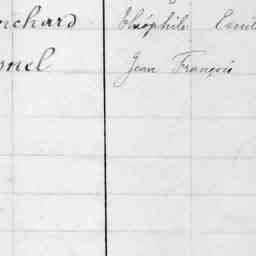 nchard Théophile Emil
onel Jean François